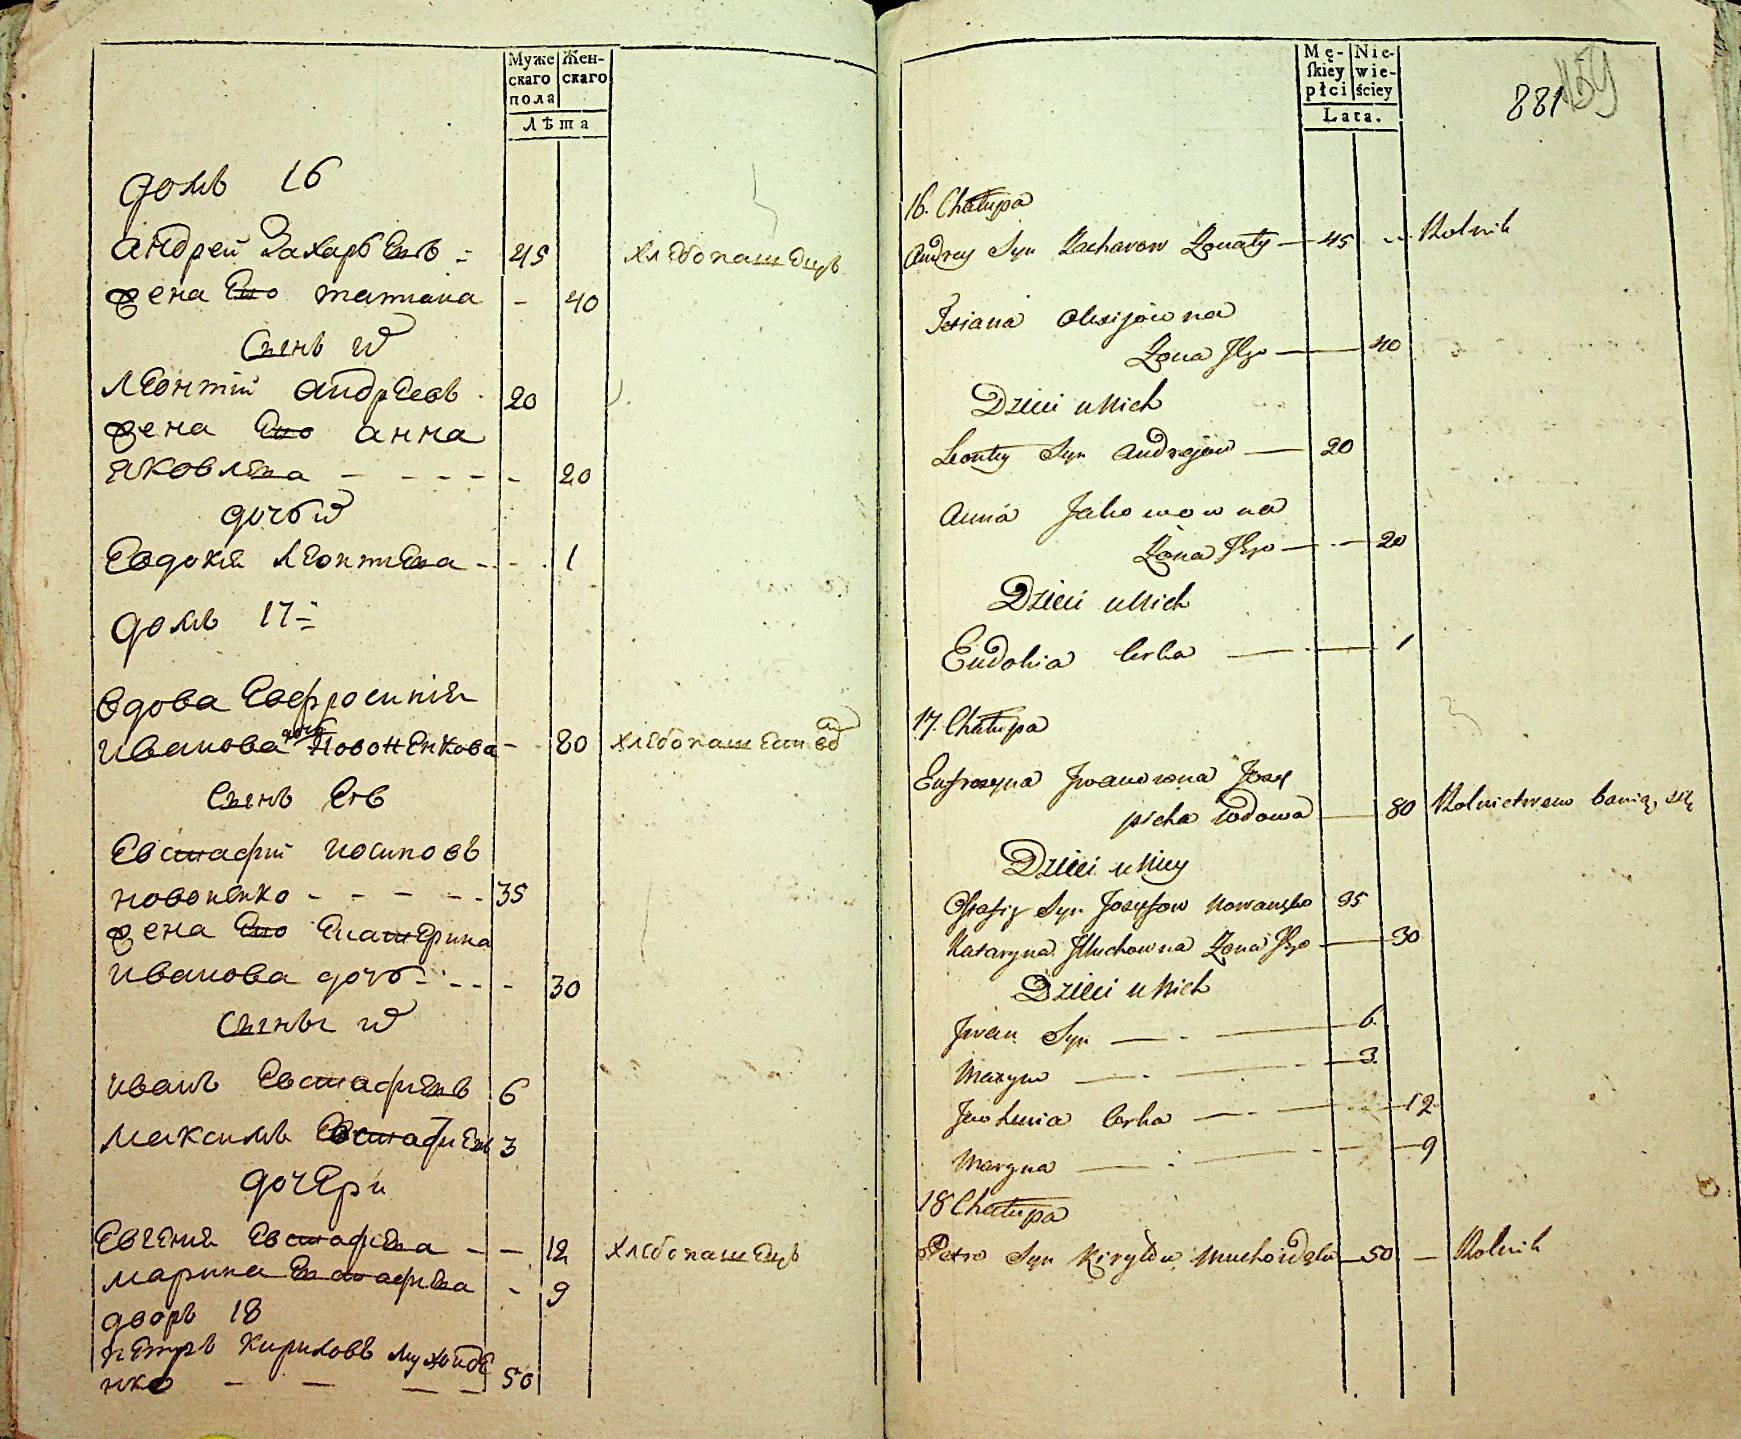 Муже
скаго
пола
Жен-
скаго
Лѣта
домъ 16
андрей Захарьевъ 45 хлѣбопашецъ
жена Его татиана - 40
Сынъ И
леонтій андреевъ 20
жена Его анна
яковлева - - - - 20
дочь И
Евдокия леонтиева - - 1
домъ 17
вдова Евфросиния
иванова дочь Новоненкова - 80 хлебопашест
Сынъ Его
Евстафий иосиповъ
новоненко - - - - 35
жена Его Екатерина
иванова дочь - - - 30
Сыны И
иванъ Евстафиевъ 6
максимъ Евстафиевъ 3
дочери
Евгения Евстафиева - - 12 хлебопашецъ
марина Евстафиева - 9
дворъ 18
петръ кириловъ мухоиде
нко - - - - 50
Mę-
skiey
płci
Nie-
wie-
ściey
Lata.
881
16. Chałupa
Andrey Syn Zacharow Żonaty — 45 - Rolnik
Tetiana Olexijowna
Żona Jego — 40
Dzieci u Nich
Leonty Syn Andrejow — 20
Anna Jakowowna
Żona Jego — 20
Dzieci u Nich
Eudokia Corka — 1
17. Chałupa
Eufrozyna Jwanowna Josy
picha wdowa — 80 Rolnictwem bawią się
Dzieci u Niey
Ostafiy Syn Jozefow Nowanenko 35
Kataryna Żona Jego — 30
Dzieci u Nich
Jwan Syn — 6
Maxym — 3
Jewhenia Corka — 12
Maryna — 9
18 Chałupa
Petro Syn Kiryłow Muchoid — 50 — Rolnik